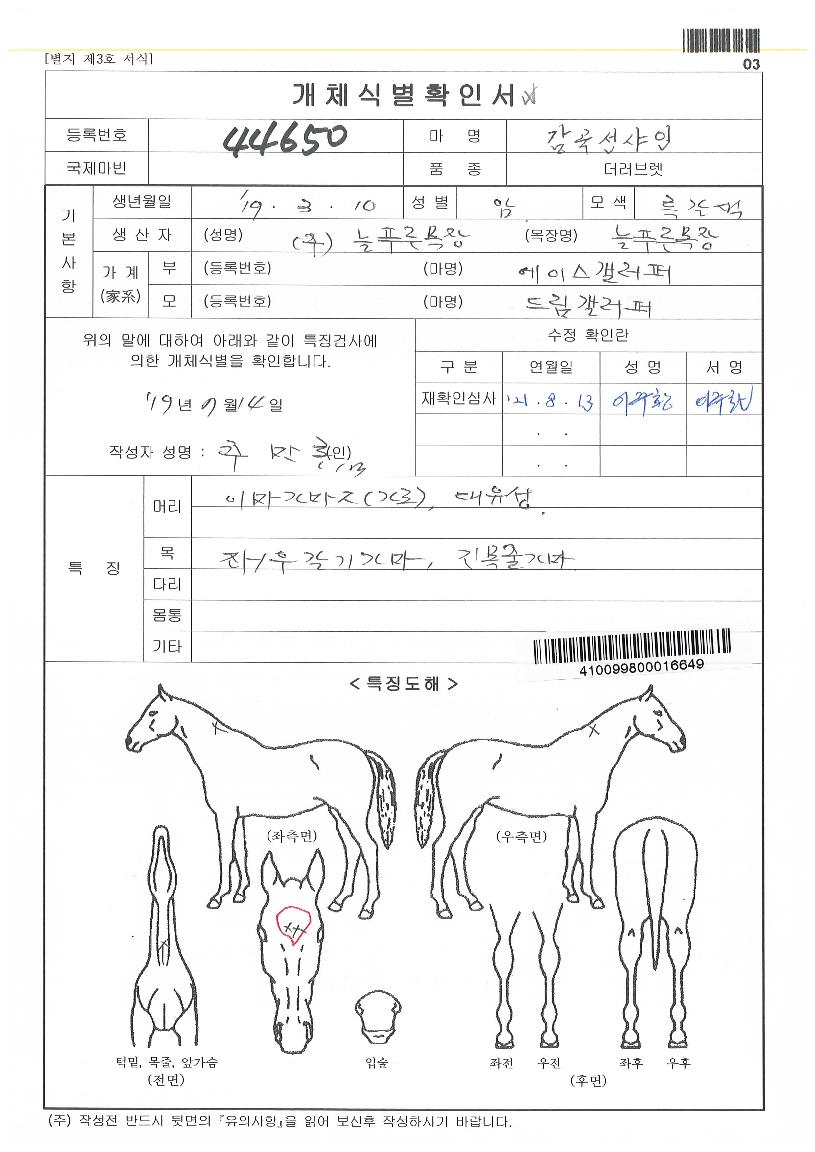 [별지 제3호 서식]
03
개체식별확인서
등록번호 44650 마 명 감곡선샤인
국제마빈 품 종 더러브렛
기본사항
생년월일 '19. 3. 10 성 별 암 모 색
생 산 자 (성명) (주) 늘푸른목장 (목장명) 늘푸른목장
가 계 (家系)
부 (등록번호) (마명) 에이스갤러퍼
모 (등록번호) (마명) 드림갤러퍼
위의 말에 대하여 아래와 같이 특징검사에
의한 개체식별을 확인합니다.
'19년 7월 14일
작성자 성명 : (인)
수정 확인란
구 분 연월일 성 명 서 명
재확인심사 '21. 8. 13
. .
. .
특 징
머리 이마가마즈(가로), 대유성.
목 좌/우 각 1가마, 긴목줄가마
다리
몸통
기타
410099800016649
< 특징도해 >
(좌측면) (우측면)
턱밑, 목줄, 앞가슴 입술 좌전 우전 좌후 우후
(전면) (후면)
(주) 작성전 반드시 뒷면의 『유의사항』을 읽어 보신후 작성하시기 바랍니다.